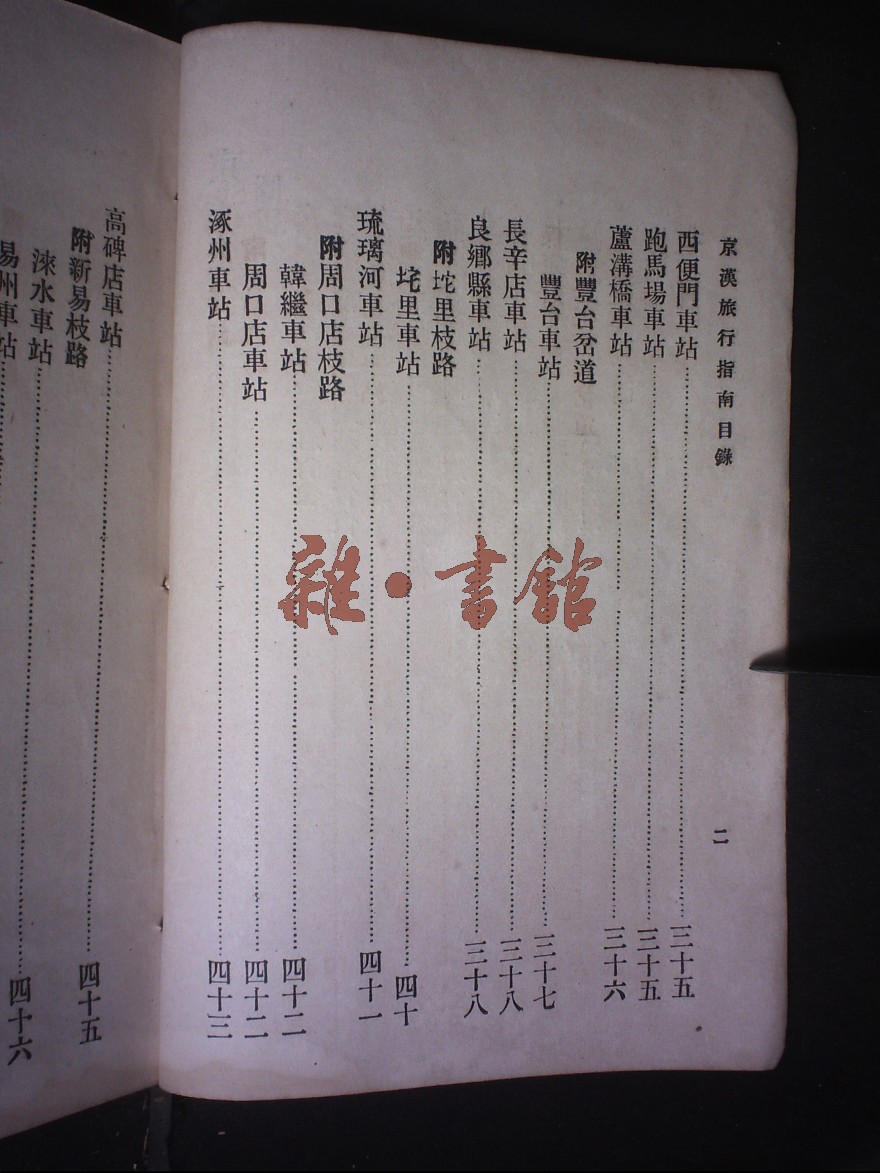 京漢旅行指南目錄
二
西便門車站 三十五
跑馬場車站 三十五
蘆溝橋車站 三十六
附豐台岔道
豐台車站 三十七
長辛店車站 三十八
良鄉縣車站 三十八
附坨里枝路
坨里車站 四十
琉璃河車站 四十一
附周口店枝路
韓繼車站 四十二
周口店車站 四十二
涿州車站 四十三
高碑店車站 四十五
附新易枝路
淶水車站 四十六
易州車站
雜·書館